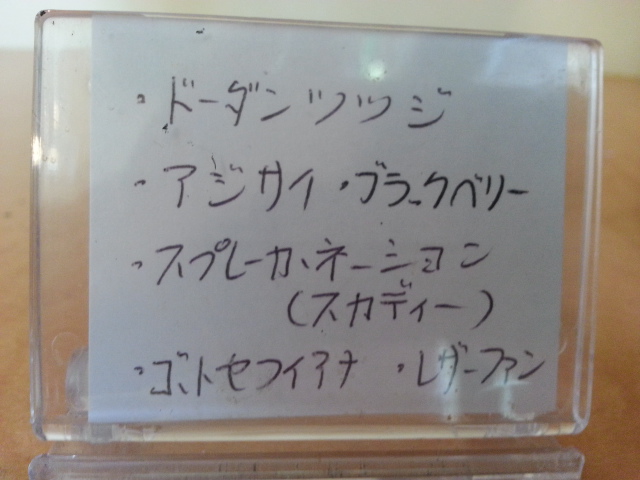 ・ドーダンツツジ
・アジサイ ・ブラックベリー
・スプレーカーネーション
(スカディー)
・ゴットセフィアナ ・レザーファン